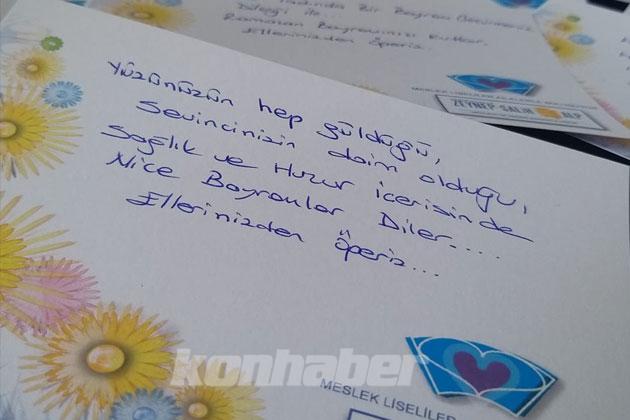 Tadında Bir Bayram Geçirmeniz
Dileği ile...
Ramazan Bayramınızı Kutlar,
Ellerinizden Öperiz.
MESLEK LİSELİLER AİLELERLE BULUŞUYOR
ZEYNEP SALİH ALP
Yüzünüzün hep güldüğü,
Sevincinizin daim olduğu,
Sağlık ve Huzur içerisinde
Nice Bayramlar Diler....
Ellerinizden Öperiz...
konhaber
MESLEK LİSELİLER